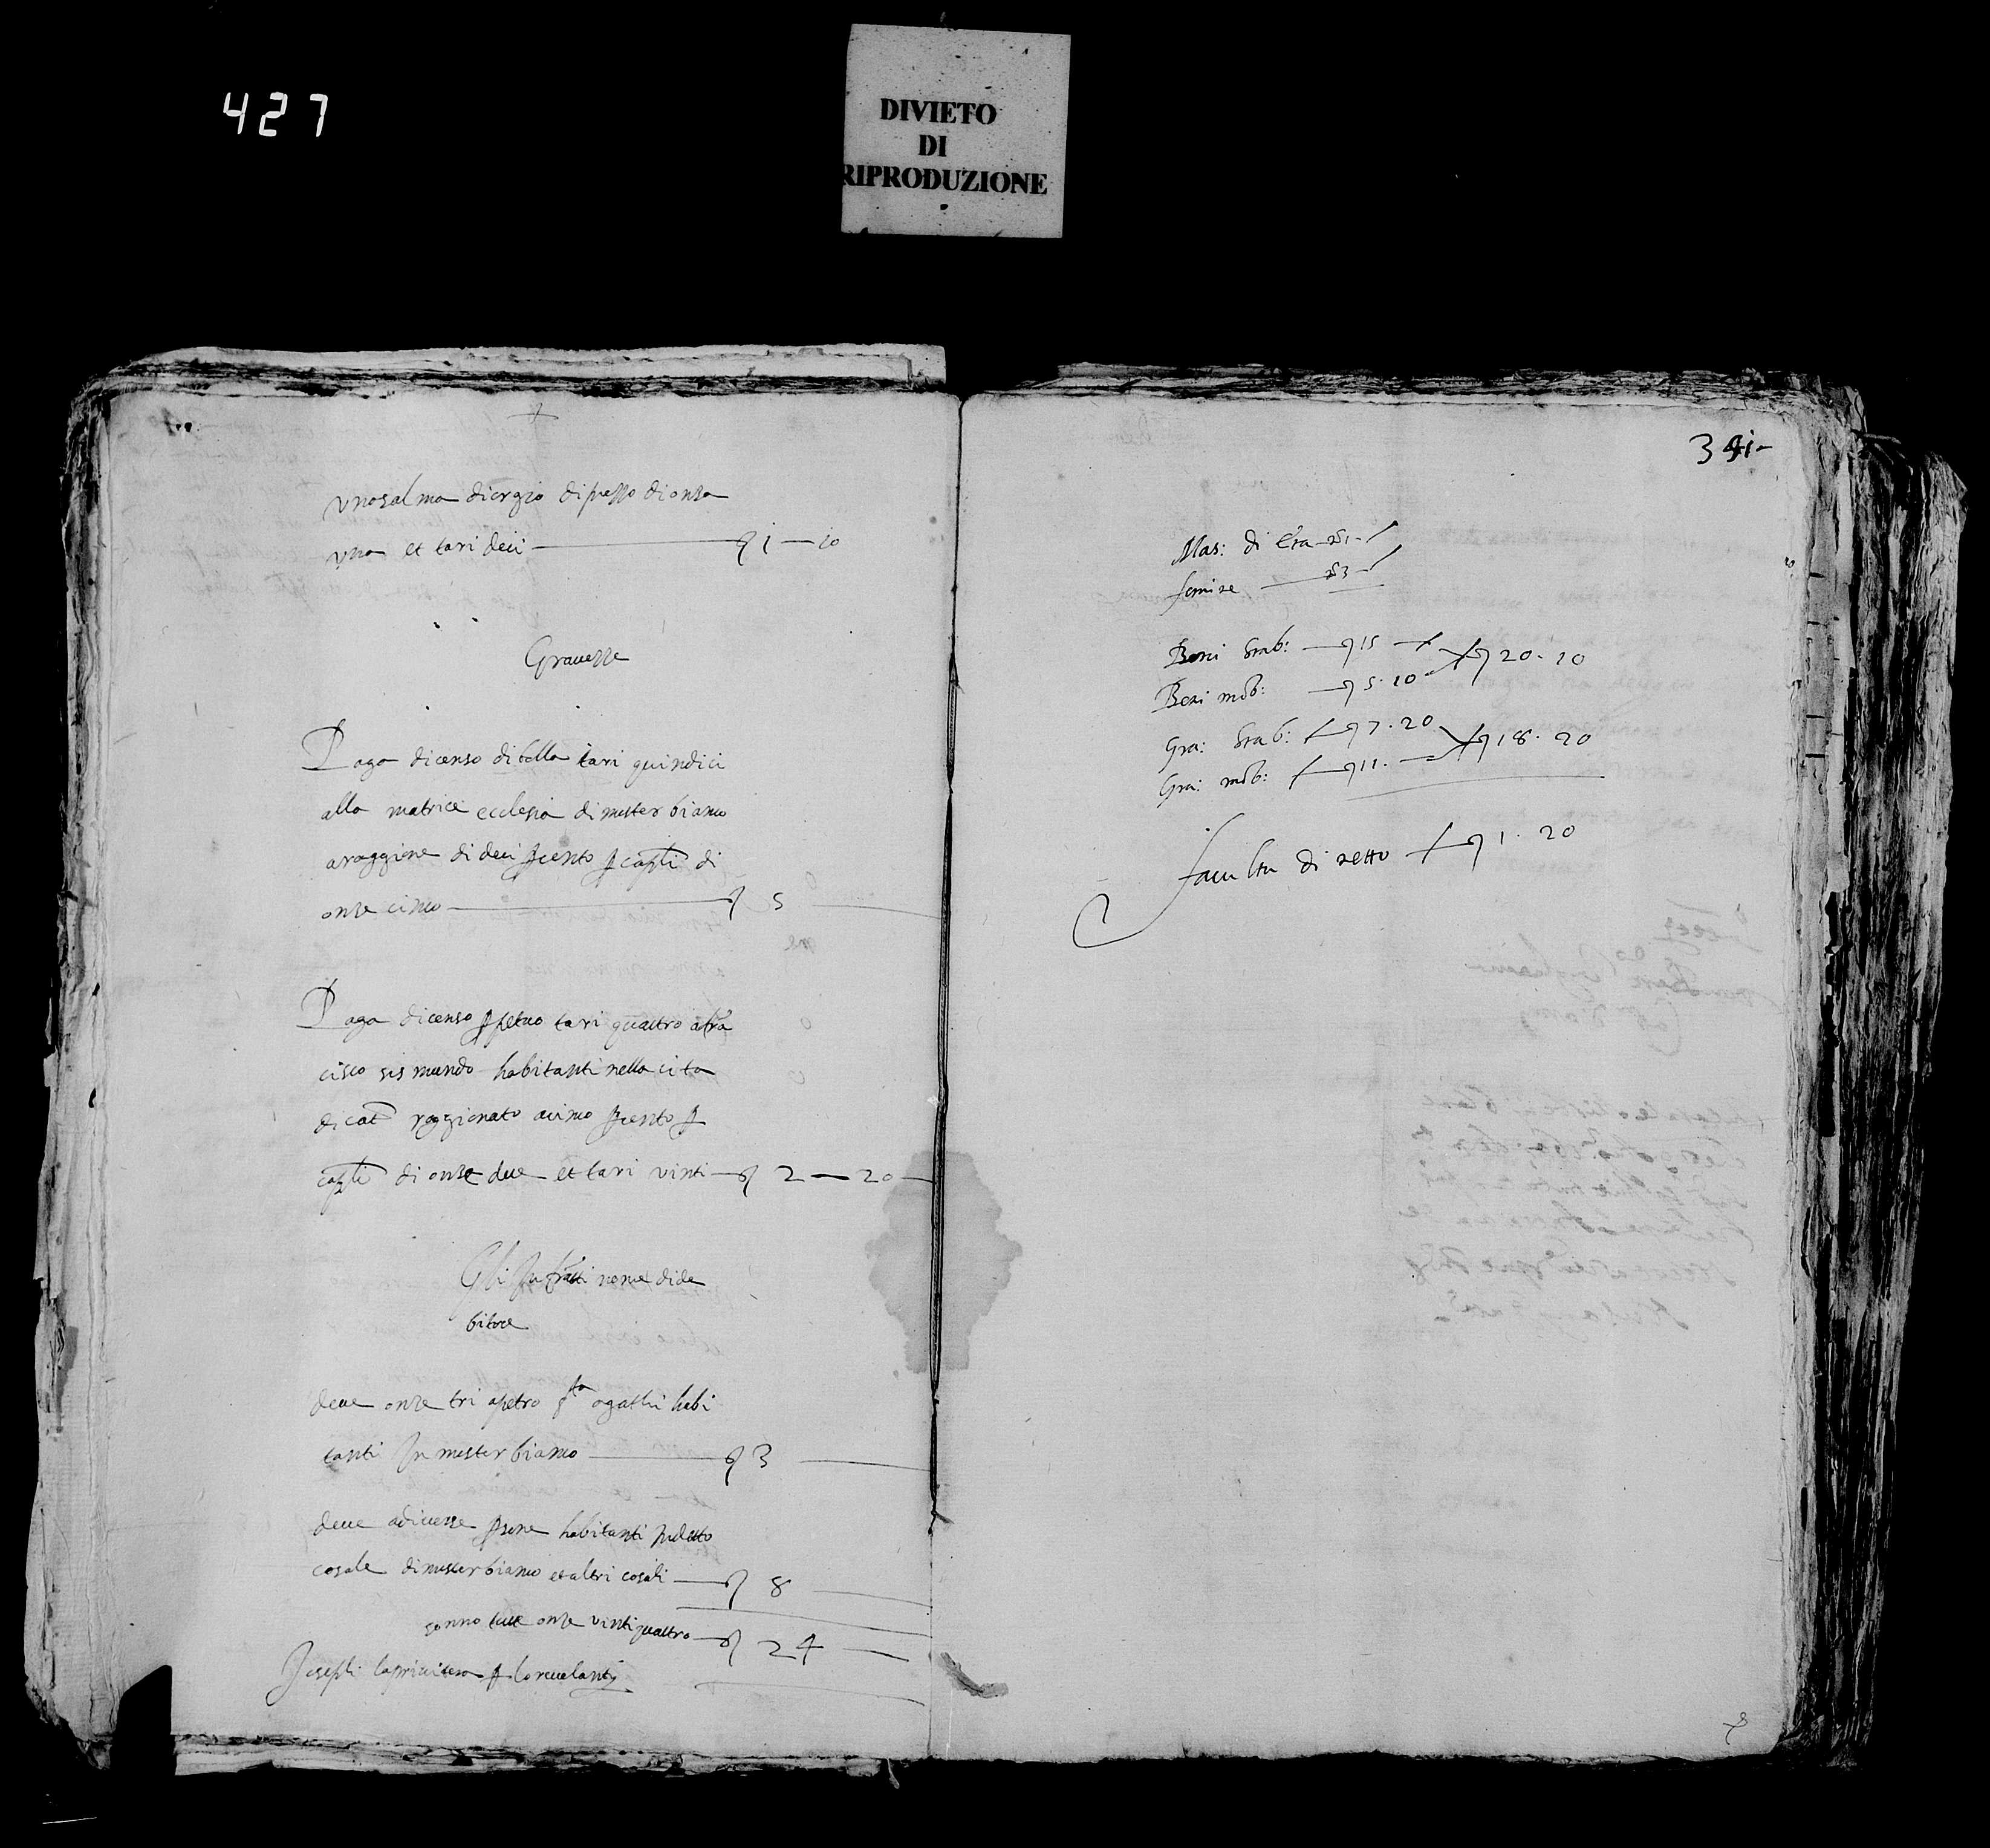 427
DIVIETO
DI
RIPRODUZIONE
una salma di orgio di prezzo di onza
una et tari deci ——— 1 — 10
Gravezze
Paga di censo di bolla tari quindici
alla matrice ecclesia di mister bianco
a raggione di deci per cento per capli di
onze cinco ——— 5
Paga di censo perpetuo tari quattro a fra
cisco sismundo habitanti nella cita
di cat raggionato a cinco per cento per
capli di onze due et tari vinti — 2 — 20
Gli infratti nome di de
bitore
deve onze tri a petro habi
tanti In mister bianco ——— 3
deve a diverse persone habitanti in detto
casale di mister bianco et altri casali — 8
sonno tutte onze vinti quattro — 24
Joseph la privitera per lo revelanti
341
Mas: di Eta — n 1
femine — n 3
Beni stab: — 15
Beni mob: — 5.10
20.10
Gra: stab: — 7.20
Gra: mob: — 11.
18.20
faculta di netto — 1.20